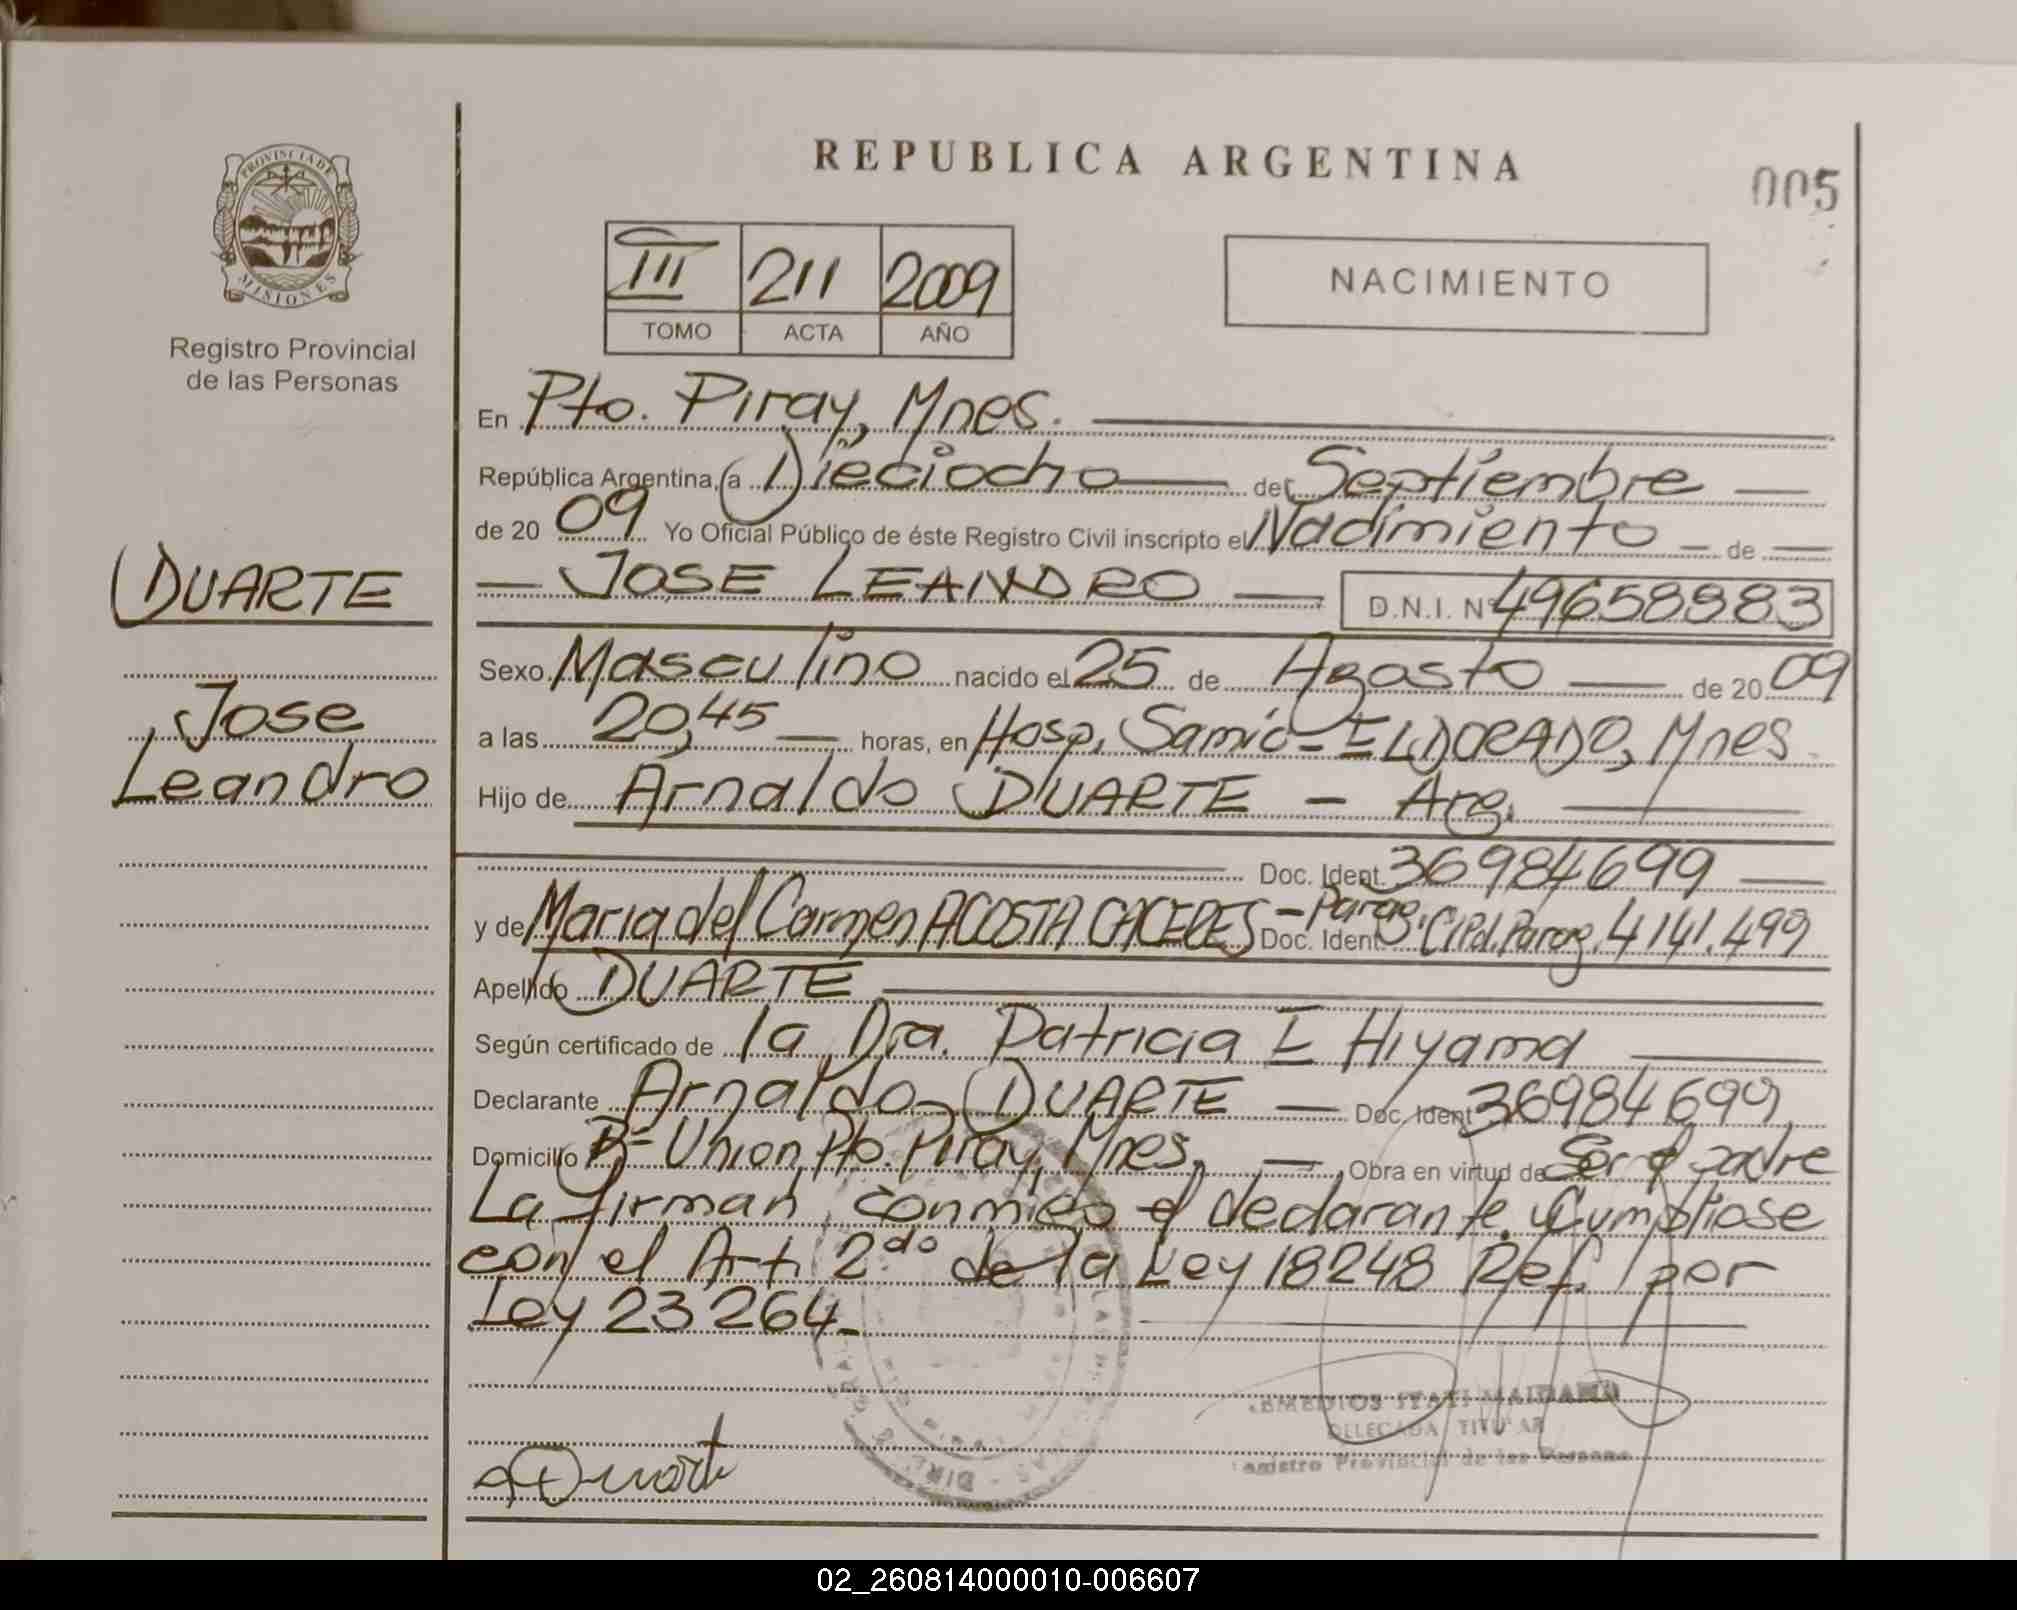 REPUBLICA ARGENTINA
005
PROVINCIA DE
MISIONES
Registro Provincial
de las Personas
III 211 2009
TOMO ACTA AÑO
NACIMIENTO
En Pto. Piray, Mnes.
República Argentina, a Dieciocho de Septiembre
de 20 09 Yo Oficial Público de éste Registro Civil inscripto el Nacimiento de
JOSE LEANDRO D.N.I. Nº 49658883
DUARTE
Jose
Leandro
Sexo Masculino nacido el 25 de Agosto de 20 09
a las 20,45 horas, en Hosp. Samic - ELDORADO, Mnes
Hijo de Arnaldo DUARTE - Arg.
Doc. Ident. 36984699
y de Maria del Carmen ACOSTA CACERES - Parag. Doc. Ident. C.I.Pol. Parag. 4141.499
Apellido DUARTE
Según certificado de la Dra. Patricia E Hiyama
Declarante Arnaldo DUARTE Doc. Ident 36984699
Domicilio Bº Union, Pto. Piray, Mnes. Obra en virtud de Ser el padre
La firman, conmigo el declarante. y Cumpliose
con el Art. 2do de la Ley 18248 Ref. por
Ley 23264.-
ADuarte
DELEGADA TITULAR
Registro Provincial de las Personas
02_260814000010-006607